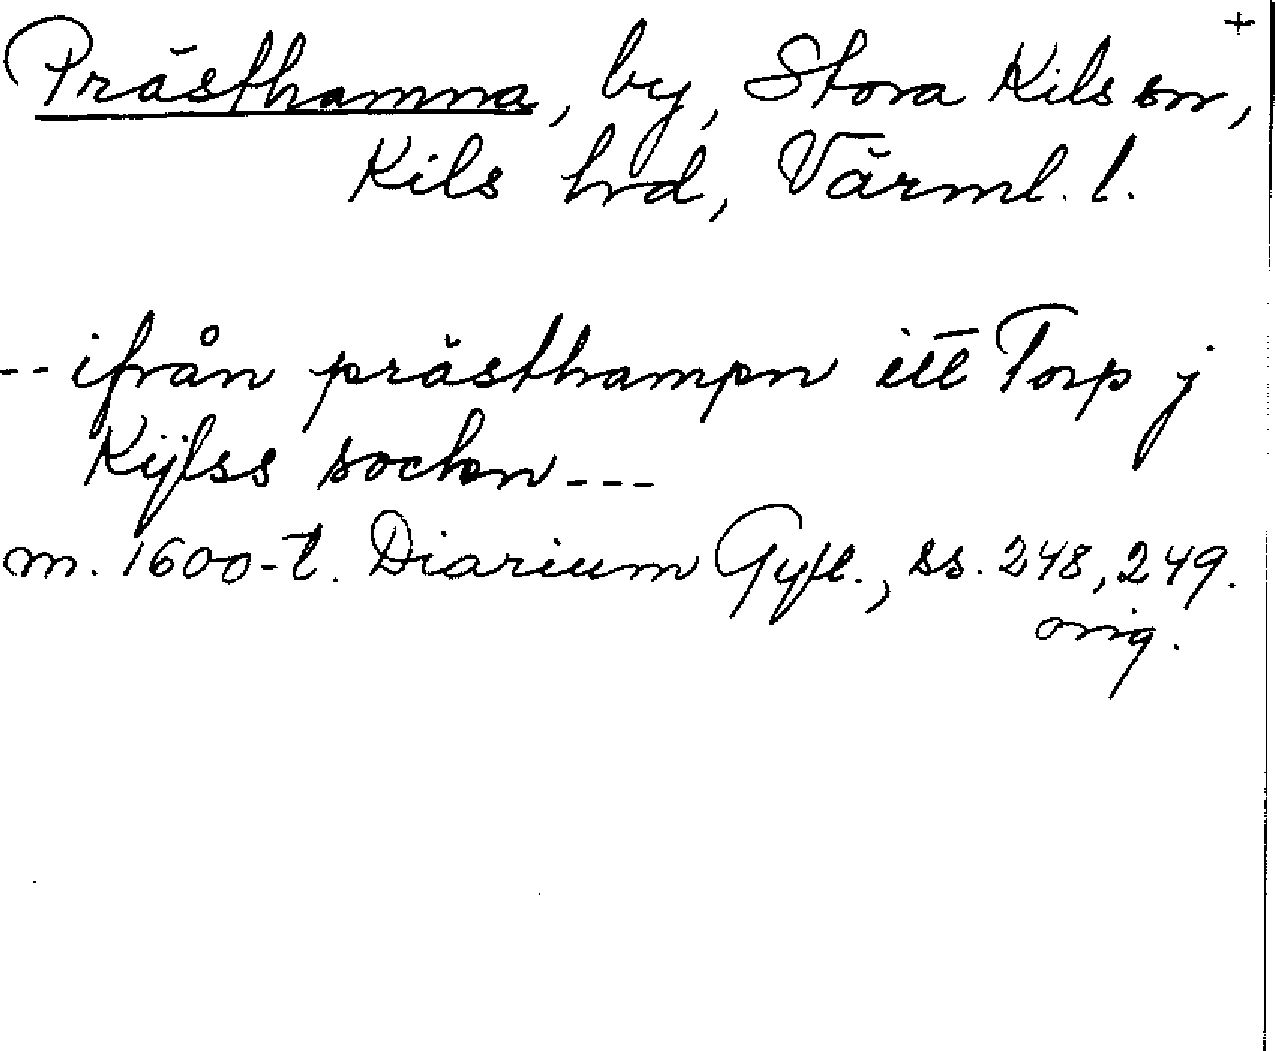 +
Prästhamna, by, Stora Kils sn,
Kils hd, Värml. l.
-- ifrån prästhampn itt Torp j
Kijlss sockn ---
m. 1600-t. Diarium Gyll., ss. 248, 249.
orig.